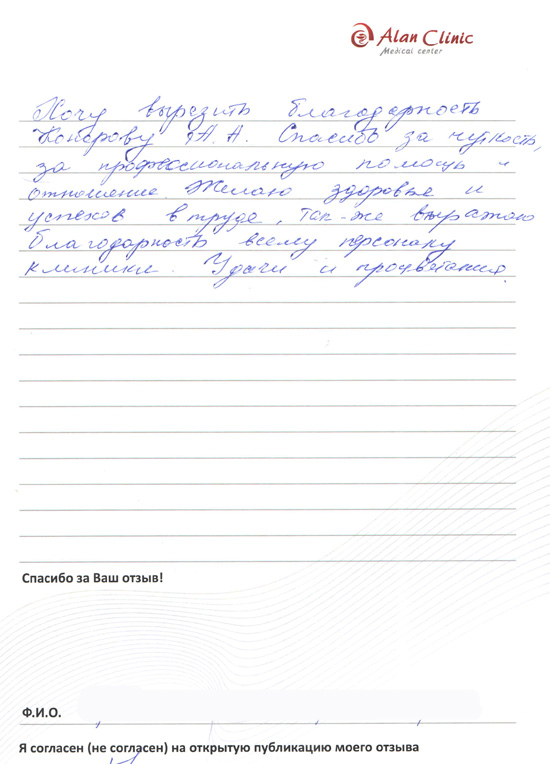 Alan Clinic
Medical center
Хочу выразить благодарность
Комарову А. А. Спасибо за чуткость,
за профессиональную помощь и
отношение. Желаю здоровье и
успехов в труде, так-же выражаю
благодарность всему персоналу
клиники. Удачи и процветания.
Спасибо за Ваш отзыв!
Ф.И.О.
Я согласен (не согласен) на открытую публикацию моего отзыва